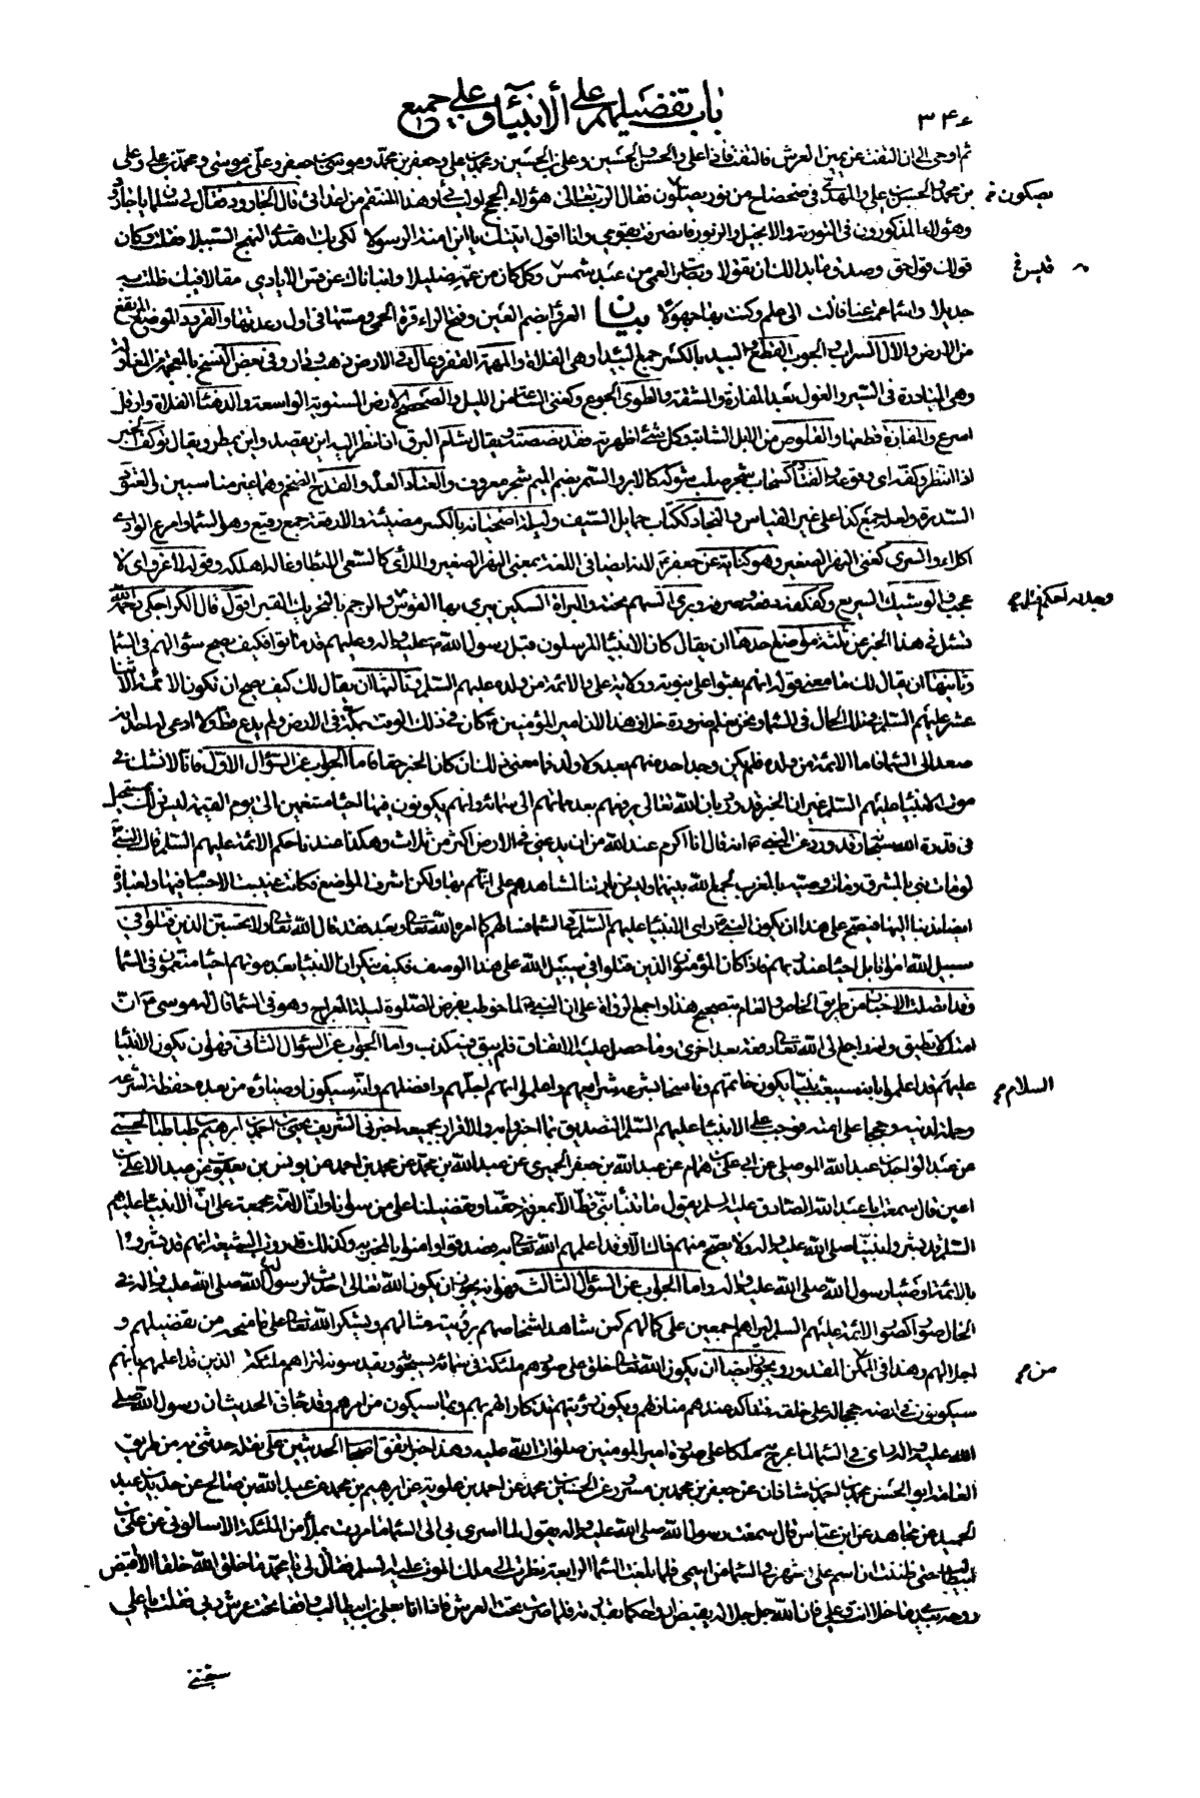 باب تفضيلهم على الأنبياء وعلى جميع
٣٤٤
ثم اوحى الى ان التفت عن يمين العرش فالتفت فاذا على والحسن والحسين وعلى بن الحسين ومحمد بن على وجعفر بن محمد وموسى بن جعفر وعلى بن موسى ومحمد بن على وعلى
بن محمد والحسن بن على والمهدى فى ضحضاح من نور يصلون فقال الرب تعالى هؤلاء الحجج لوليائى وهذا المنتقم من اعدائى قال الجارود فقال لى سلمان يا جارود
يصكون
وهؤلاء المذكورون فى التورية والانجيل والزبور فانصرفت بقومى وانا اقول اتيتك يا ابن امنة الرسولا لكى بك اهتدى النهج السبيلا فقلت وكان
قولك قول حق وصدق ما بدا لك ان تقولا وبصرت العمى من عبد شمس وكل كان من عمه ضليلا وانبأناك عن قس الايادى مقالا فيك ظلت به
جديلا واسماء عمت عنا فآلت الى علم وكنت بها جهولا بيان العرواء بضم العين وفتح الراء قرة الحمى ومسها فى اول رعدتها
من الارض والآل السراب والجوب القطع والبيد بالكسر جمع البيداء وهى الفلاة والمهمه القفر وعال فى الارض ذهب ودار وفى بعض النسخ بالمعجمة
وهى المبادرة فى السير والغول بعد المفازة والمشقة والطوى الجوع والصحصح الارض المستوية الواسعة والدهناء الفلاة وارقل
اسرع والمفازة قطعها والقلوص من الابل الشابة وكل شئ اظهرته فقد نصصته ويقال شام البرق اذا نظر اليه اين يقصد واين يمطر ويقال توكف الخبر
اذا انتظر وكفه اى وقوعه والقتاد كسحاب شجر صلب شوكه كالابر والسمر بضم الميم شجر معروف والعتاد العدة والقدح الضخم وهما غير مناسبين
السدرة ولعله جمع كذا على غير القياس والنجاد ككتاب حمايل السيف وليلة اضحيانة بالكسر مضيئة والارقعة جمع رقيع وهو السماء وامرع الوادى
اكلأ والسرى كغنى النهر الصغير وهو كناية عن جعفر ع لانه ايضا فى اللغة بمعنى النهر الصغير واللأى كالسعى الابطاء وغاله اهلكه وقوله لا غرو اى لا
عجب والوشيك السريع والرجم بالتحريك القبر اقول قال الكراجكى رحمه الله
تسئل فى هذا الخبر عن ثلثة مواضع احدها ان يقال كان الانبياء المرسلون قبل رسول الله ص قد ماتوا فكيف يصح سؤالهم فى السماء
وثانيها ان يقال لك ما معنى قوله انهم بعثوا على نبوته وولاية على والائمة من ولده عليهم السلم وثالثها ان يقال لك كيف يصح ان تكون الائمة الاثنا
عشر عليهم السلم فى تلك الحال فى السماء ونحن نعلم ضرورة خلاف هذا لان امير المؤمنين ع كان فى ذلك الوقت بمكة فى الارض ولم يدع قط ولا ادعى له احد انه
صعد الى السماء فاما الائمة من ولده فلم يكن وجد احد منهم بعد ولا ولد فما معنى ذلك ان كان الخبر حقا فاما الجواب عن السؤال الاول فانا لا نشك فى
موت الانبياء عليهم السلم غير ان الخبر قد ورد بان الله تعالى يرفعهم بعد مماتهم الى سمائه وانهم يكونون فيها احياء متنعمين الى يوم القيمة ليس ذلك بمستحيل
فى قدرة الله سبحانه وقد ورد عن النبى ص انه قال انا اكرم عند الله من ان يدعنى فى الارض اكثر من ثلاث وهكذا عندنا حكم الائمة عليهم السلم قال النبى ص
لو مات نبى بالمشرق ومات وصيه بالمغرب لجمع الله بينهما وليس زيارتنا لمشاهدهم على انهم بها ولكن لشرف المواضع فكانت غيبت الاجسام فيها ولعبادة
ايضا ندبنا اليها فيصح على هذا ان يكون النبى ص رأى الانبياء عليهم السلم فى السماء فسألهم كما امره الله تعالى وبعد فقد قال الله تعالى ولا تحسبن الذين قتلوا فى
سبيل الله امواتا بل احياء عند ربهم فاذا كان المؤمنون الذين قتلوا فى سبيل الله على هذا الوصف فكيف ينكر ان الانبياء بعد موتهم احياء متنعمون فى السماء
وقد اتصلت الاخبار من طريق الخاص والعام بتصحيح هذا واجمع الرواة على ان النبى ص لما خوطب بفرض الصلوة ليلة المعراج وهو فى السماء قال له موسى ع ان
امتك لا تطيق وانه راجع الى الله تعالى دفعة بعد اخرى وما حصل عليه الاتفاق فلم يبق فيه كذب واما الجواب عن السؤال الثانى فهو ان يكون الانبياء
عليهم قد اعلموا بانه سيبعث نبيا يكون خاتمهم وناسخا بشرعه شرايعهم واعلموا انه اجلهم وافضلهم وانه سيكون اوصياؤه من بعده حفظة لشرعه
السلام
وحملة لدينه وحججا على امته فوجب على الانبياء عليهم السلم التصديق بما اخبروا به والاقرار بجميعه اخبرنى الشريف يحيى بن احمد بن ابرهيم بن طباطبا الحسينى
عن عبد الواحد بن عبد الله الموصلى عن ابى على بن همام عن عبد الله بن جعفر الحميرى عن عبد الله بن محمد عن محمد بن احمد عن يونس بن يعقوب عن عبد الاعلى بن
اعين قال سمعت ابا عبد الله الصادق عليه السلم يقول ما تنبأ نبى قط الا بمعرفة حقنا وتفضيلنا على من سوانا وان الامة مجمعة على ان الانبياء عليهم
السلم قد بشروا بنبينا صلى الله عليه وآله ولا يصح منهم ذلك الا وقد اعلمهم الله تعالى به فصدقوا وامنوا بالمخبر به وكذلك قد روت الشيعة انهم قد بشروا
بالائمة اوصياء رسول الله صلى الله عليه وآله واما الجواب عن السؤال الثالث فهو انه يجوز ان يكون الله تعالى احدث لرسوله صلى الله عليه وآله فى
الحال صورا كصور الائمة عليهم السلم ليراهم اجمعين على كمالهم كمن شاهد اشخاصهم برؤيته مثالهم ويشكر الله تعالى على ما منحه من تفضيلهم و
اجلالهم وهذا فى الممكن المقدور ويجوز ايضا ان يكون الله تعالى خلق على صورهم ملئكة فى سمائه يسبحونه ويقدسونه لتراهم ملئكته الذين قد اعلمهم بانهم
من
سيكونون فى ارضه حججا له على خلقه فتتأكد عندهم منازلهم وتكون رؤيتهم تذكارا لهم بهم وبما سيكون من امرهم وقد جاء فى الحديث ان رسول الله صلى
الله عليه وآله رأى فى السماء لما عرج به ملكا على صورة امير المؤمنين صلوات الله عليه وهذا خبر اتفق اصحاب الحديث على نقله حدثنى به من طريق
العامة ابو الحسن محمد بن احمد بن شاذان عن جعفر بن محمد بن مسرور عن الحسين بن محمد عن احمد بن علوية عن ابرهيم بن محمد عن عبد الله بن صالح عن جرير بن عبد
الحميد عن مجاهد عن ابن عباس قال سمعت رسول الله صلى الله عليه وآله يقول لما اسرى بى الى السماء ما مررت بملأ من الملئكة الا سألونى عن على بن
ابيطالب حتى ظننت ان اسم على اشهر فى السماء من اسمى فلما بلغت السماء الرابعة نظرت الى ملك الموت عليه السلم فقال لى يا محمد ما خلق الله خلقا الا اقبض
روحه بيدى ما خلا انت وعلى فان الله جل جلاله يقبض ارواحكما بقدرته فلما صرت تحت العرش فاذا انا بعلى بن ابيطالب واقفا تحت عرش ربى فقلت يا على
سبقتنى